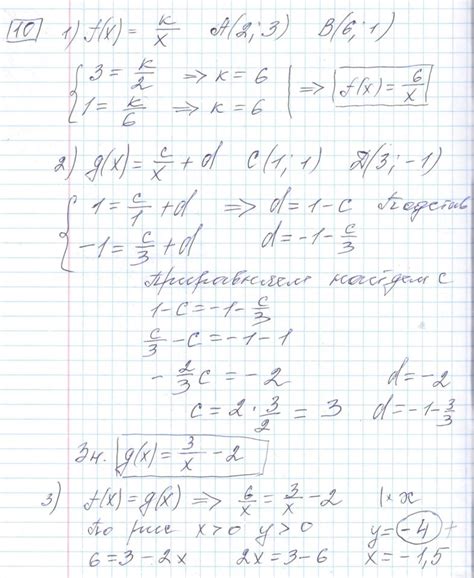 10 1) f(x) = k/x A(2; 3) B(6; 1)
{ 3 = k/2 => k = 6
{ 1 = k/6 => k = 6 | => f(x) = 6/x
2) g(x) = c/x + d C(1; 1) D(3; -1)
{ 1 = c/1 + d => d = 1 - c Подстав
{ -1 = c/3 + d d = -1 - c/3
Приравняем найдем c
1 - c = -1 - c/3
c/3 - c = -1 - 1
- 2/3 c = -2 d = -2
c = 2 · 3/2 = 3 d = -1 - 3/3
Зн. g(x) = 3/x - 2
3) f(x) = g(x) => 6/x = 3/x - 2 | · x
По рис x > 0 y > 0 y = -4
6 = 3 - 2x 2x = 3 - 6 x = -1,5